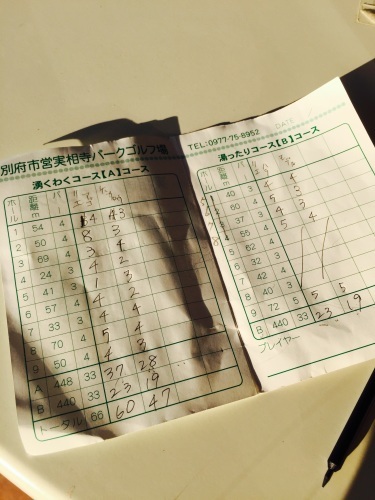 別府市営実相寺パークゴルフ場
湧くわくコース【A】コース
ホール 距離m パー
1 54 4 4 3
2 50 4 8 3
3 69 4 3 4
4 24 3 4 2
5 41 3 1 3
6 57 4 4 2
7 33 3 4 4
8 70 4 5 4
9 50 4 4 3
A 448 33 37 28
B 440 33 23 19
トータル 66 60 47
TEL:0977-75-8952
湯ったりコース【B】コース
ホール 距離m パー
1 40 3 4 4
60 4 5 3
38 3 4 3
55 4 5 4
5 62 4
6 32 3
7 42 3
8 40 3
9 72 5 5 5
B 440 33 23 19
プレイヤー